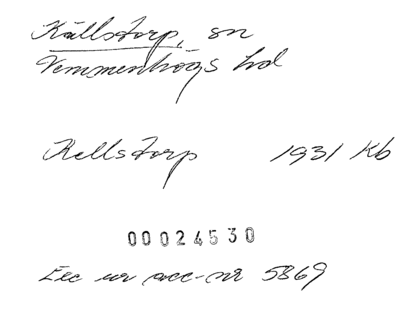 Källstorp, sn
Vemmenhögs hd
Kellstorp 1931 Kb
00024530
Exc ur acc-nr 5869